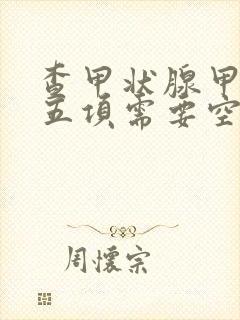 查甲状腺甲
五項需要空
周懷宗